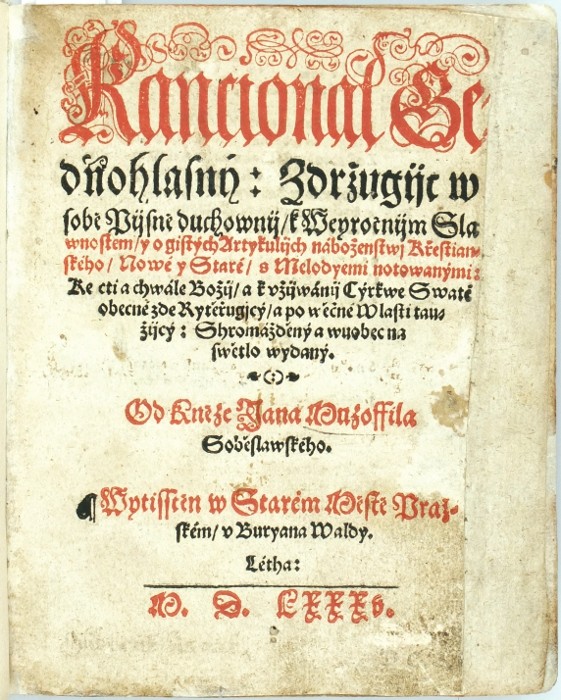 Kancional Ge
dňohlasný: Zdržugijc w
sobě Pijsně duchownij/ k Weyročnijm Sla
wnostem/ y o gistých Artykulijch náboženstwj Křestian-
ského/ Nowé y Staré/ s Melodyemi notowanými:
Ke cti a chwále Božij/ a k vžijwánij Cýrkwe Swaté
obecné zde Rytěřugjcý/ a po wěčné Wlasti tau-
žijcý: Shromážděný a wuobec na
swětlo wydaný.
Od Kněze Jana Muzoffila
Soběslawského.
¶ Wytisstěn w Starém Městě Praž-
ském/ v Buryana Waldy.
Létha:
M. D. LXXXv.